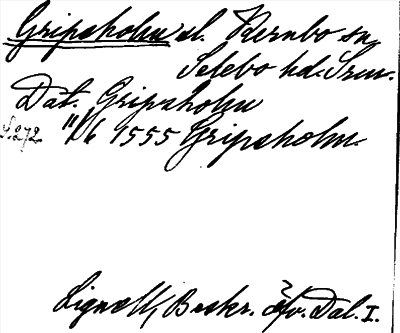 Gripsholm sl. Kernbo sn,
Selebo hd. Srm.
Dat. Gripsholm
S. 272. 11/6 1555 Gripsholm.
Lignell, Beskr. öfv. Dal. I.